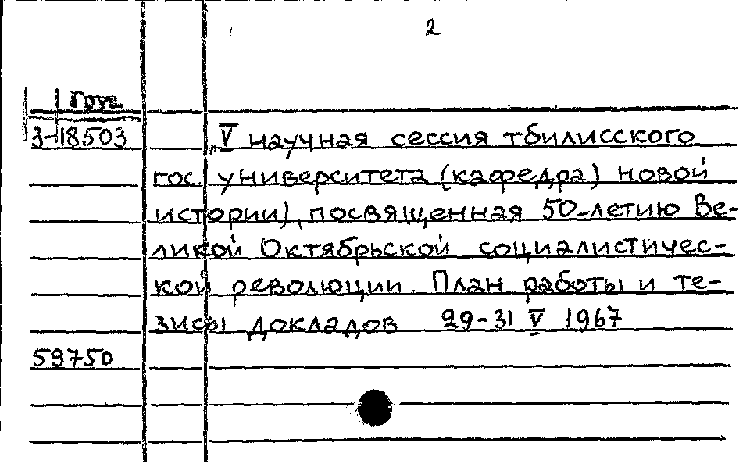 2
Груз.
3-18503
„V научная сессия тбилисского
гос. университета (кафедра) новой
истории), посвященная 50-летию Ве-
ликой Октябрьской социалистичес-
кой революции. План работы и те-
зисы докладов 29-31 V 1967
59750